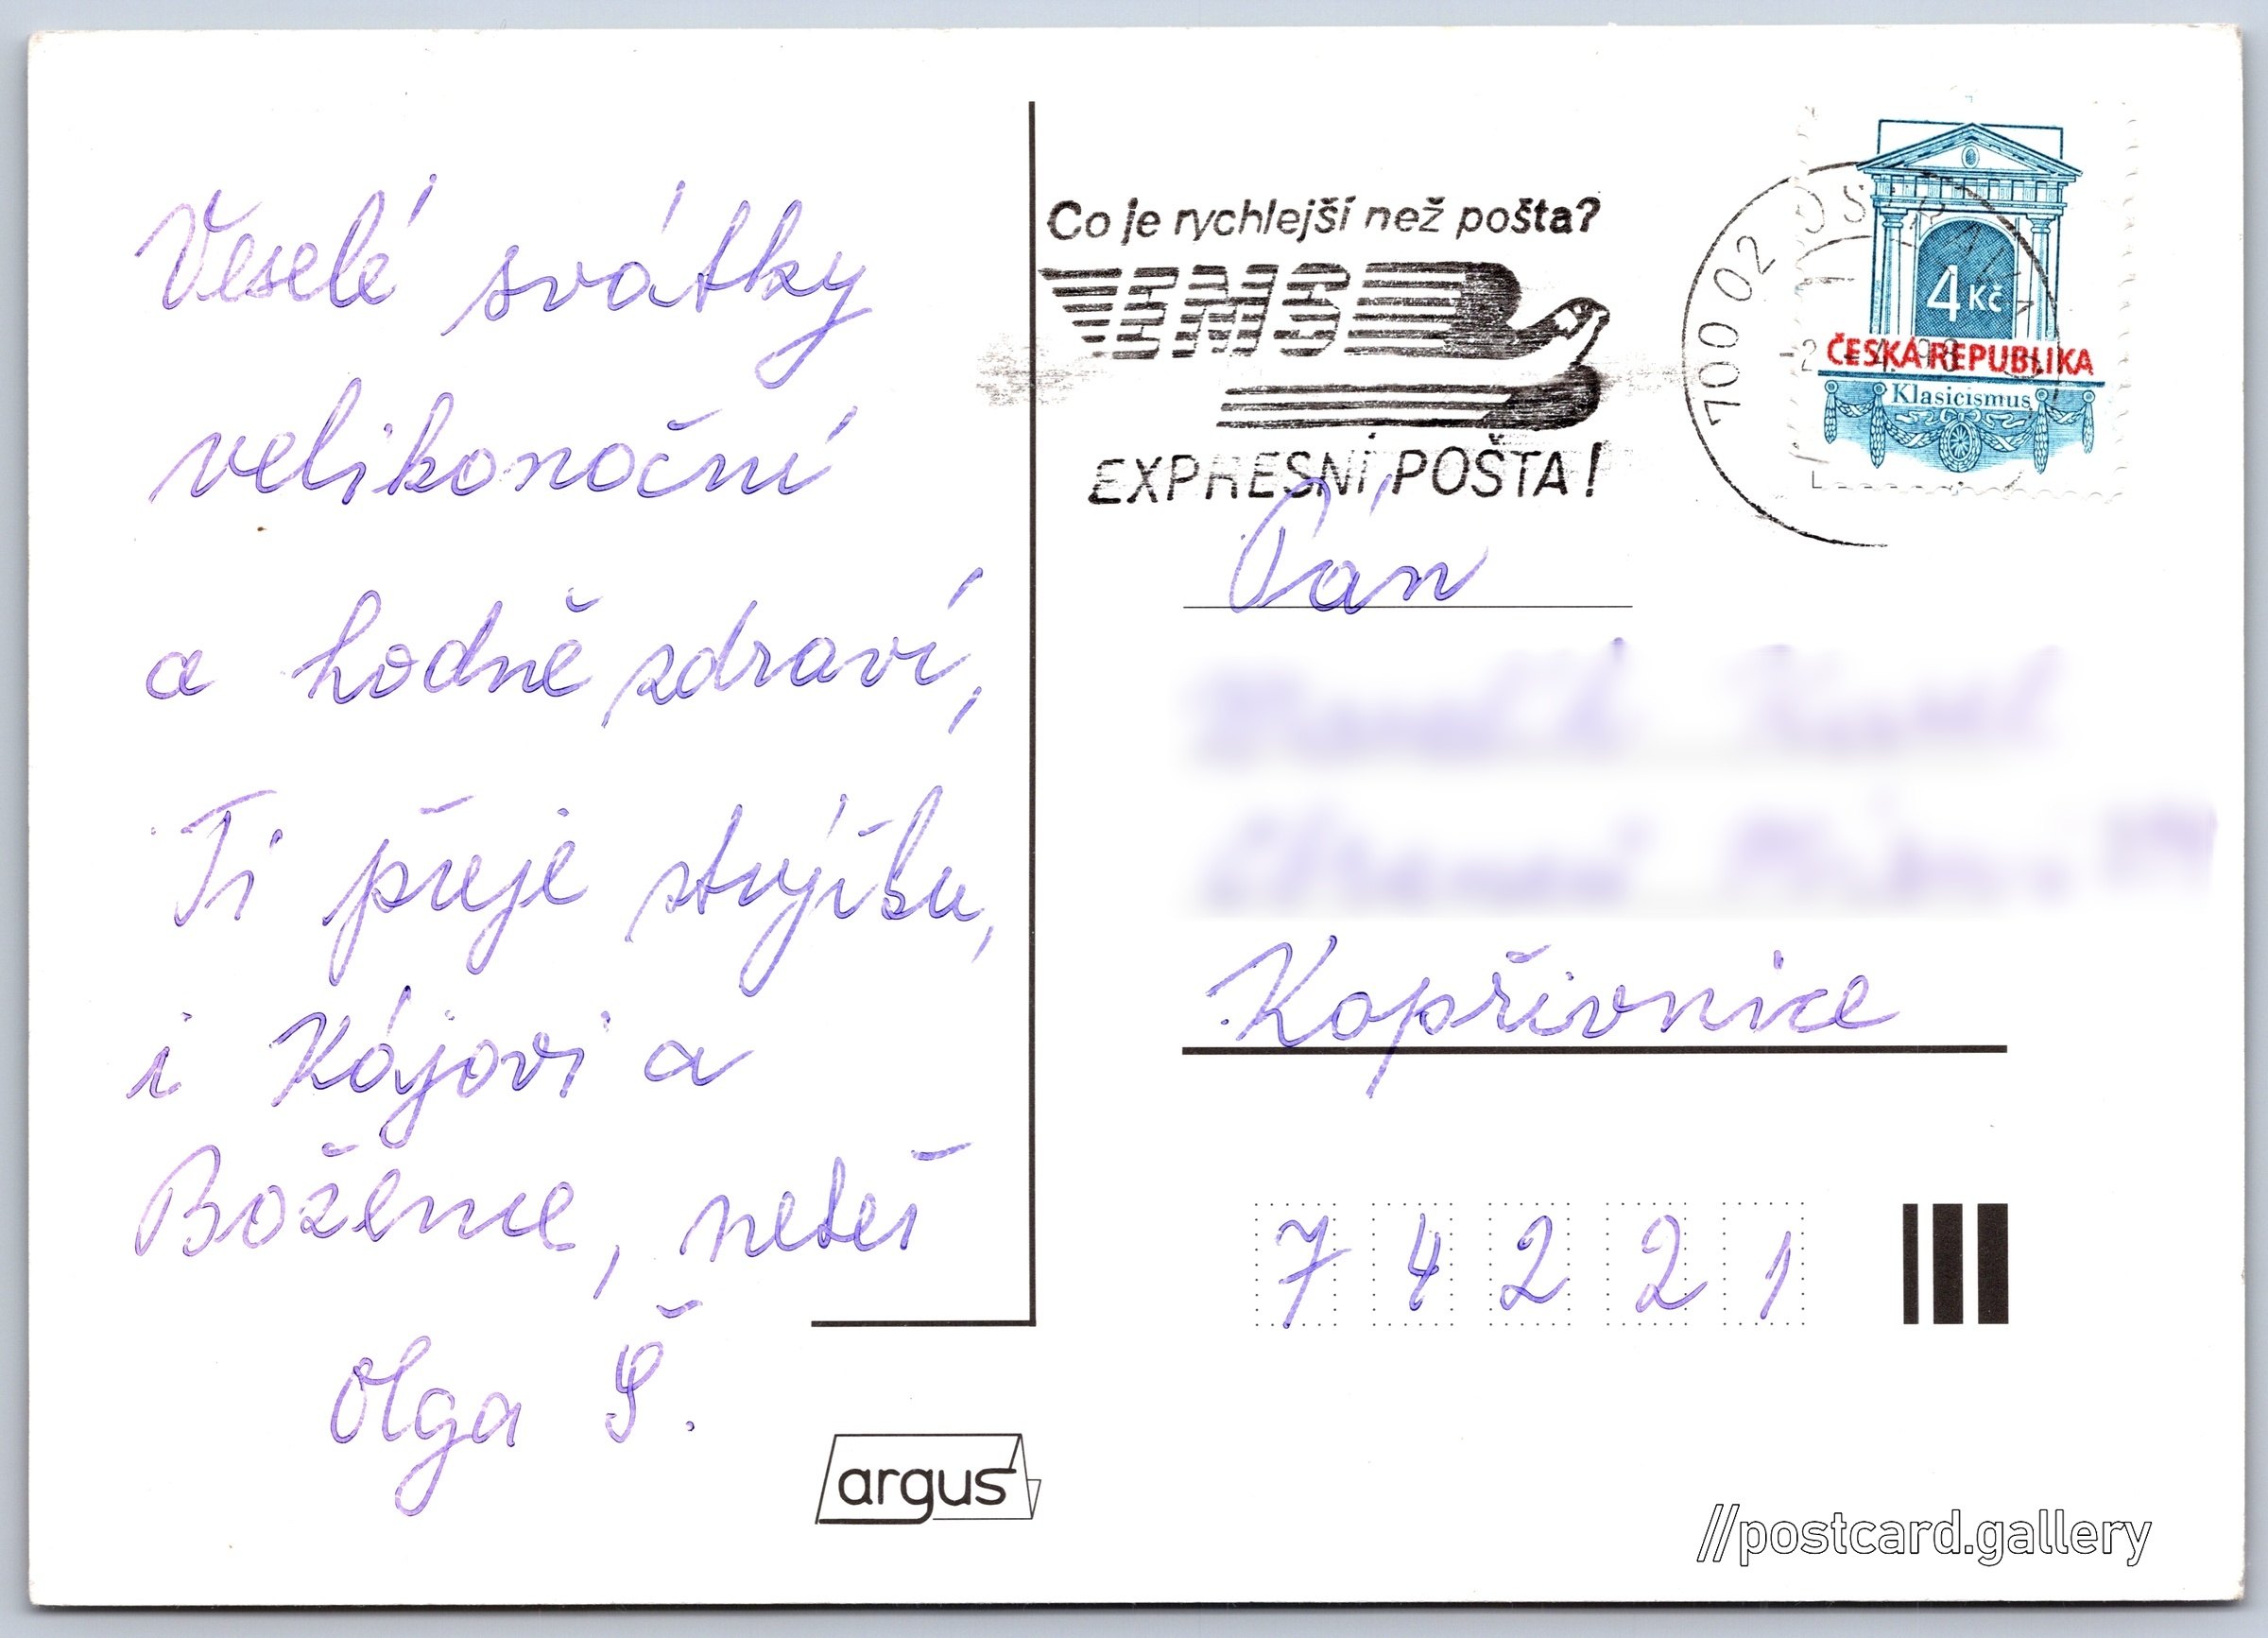 Veselé svátky
velikonoční
a hodně zdraví,
Ti přeje strýčku,
i Kájovi a
Božence, neteř
Olga Š.
argus
Co je rychlejší než pošta?
EMS
EXPRESNÍ POŠTA!
700 02 OSTRAVA
4 Kč
ČESKÁ REPUBLIKA
Klasicismus
Pán
Kopřivnice
74221
//postcard.gallery